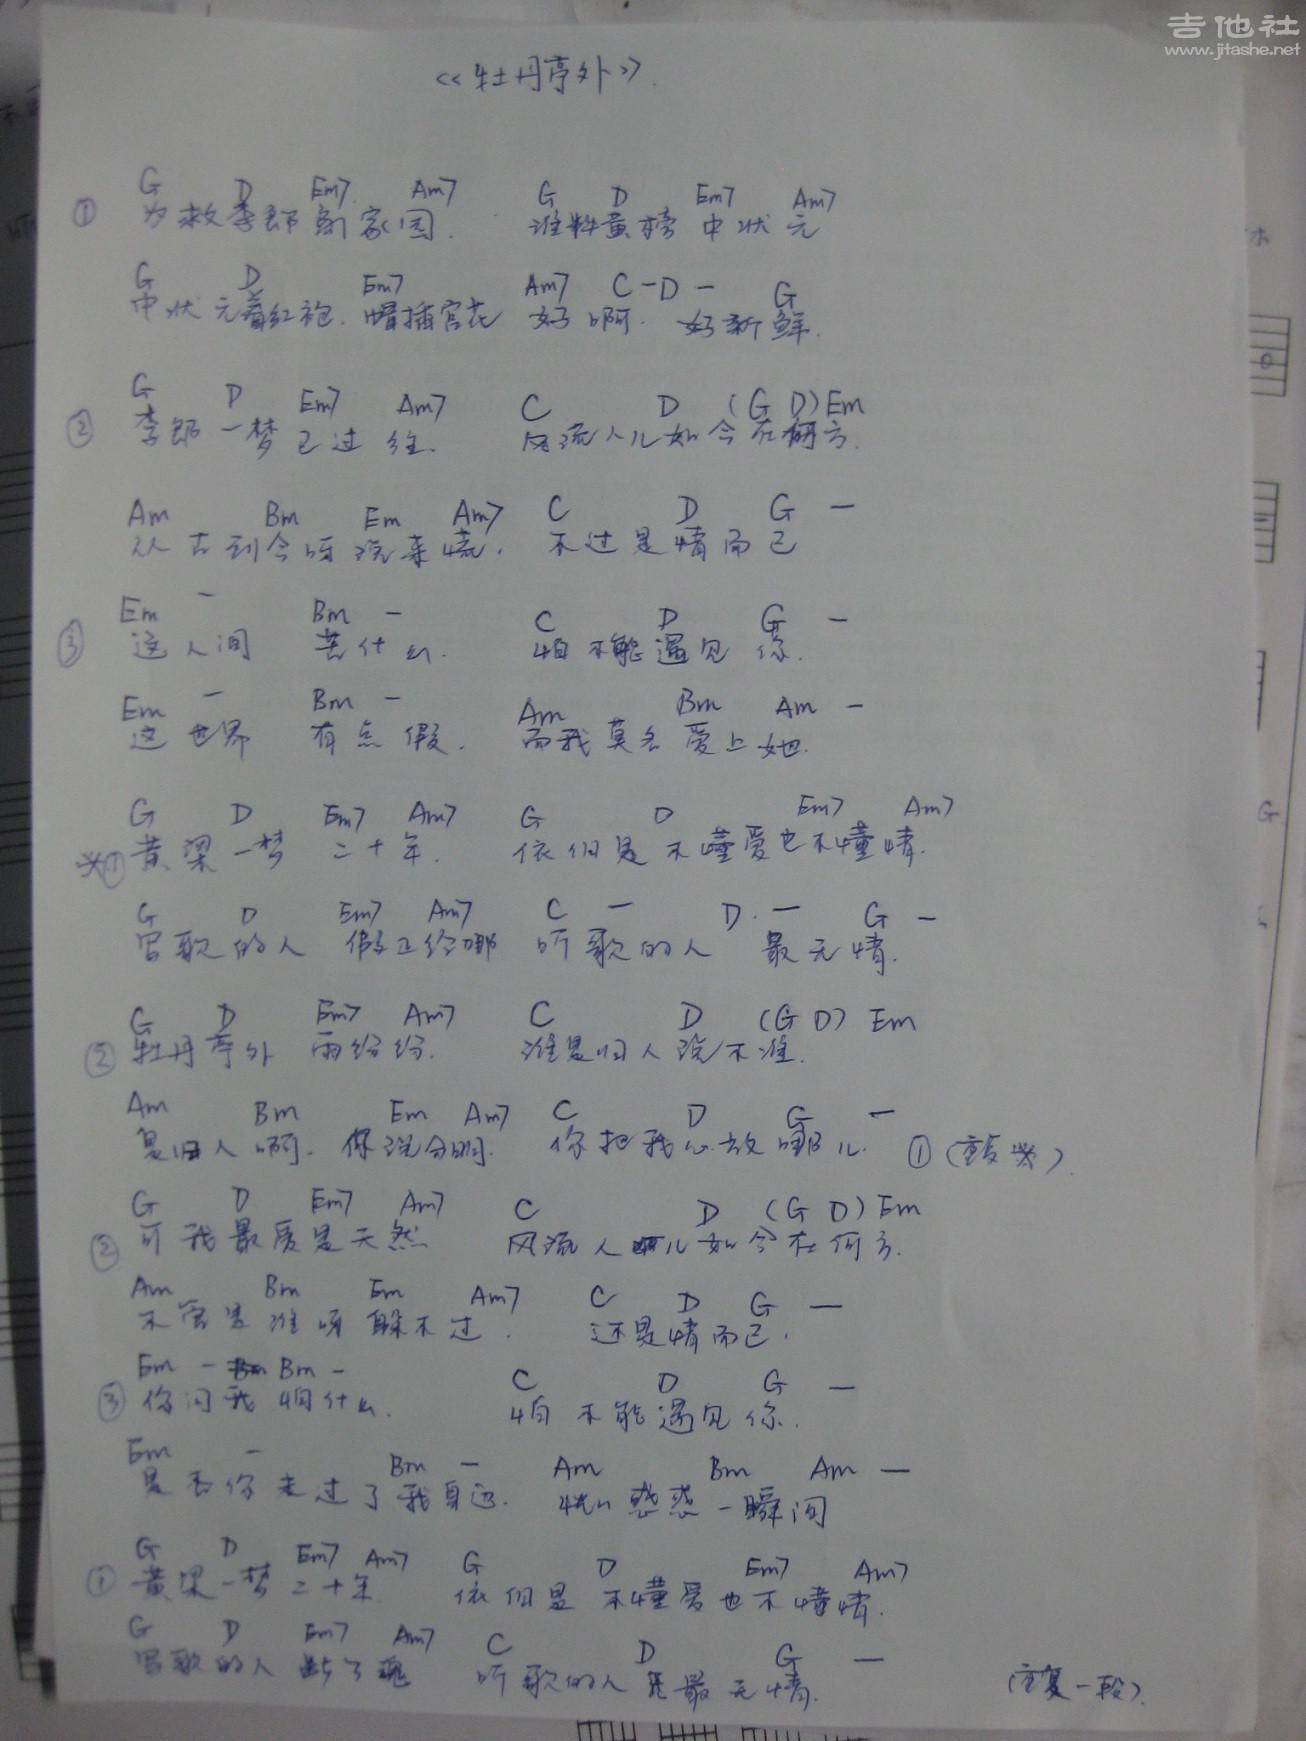 吉他社
www.jitashe.net
《牡丹亭外》
G D Em7 Am7 G D Em7 Am7
① 为救李郎离家园. 谁料黄榜中状元
G D Em7 Am7 C - D - G
中状元着红袍. 帽插宫花 好啊. 好新鲜.
G D Em7 Am7 C D (G D) Em
② 李郎一梦已过往. 风流人儿如今在何方.
Am Bm Em Am7 C D G -
从古到今呀说来慌. 不过是情而已
Em - Bm - C D G -
③ 这人间 苦什么. 怕不能遇见你.
Em - Bm - Am Bm Am -
这世界 有点假. 而我莫名爱上她.
G D Em7 Am7 G D Em7 Am7
※① 黄梁一梦 二十年. 依旧是不懂爱也不懂情.
G D Em7 Am7 C - D. - G -
写歌的人 假正经哪 听歌的人 最无情.
G D Em7 Am7 C D (G D) Em
② 牡丹亭外 雨纷纷. 谁是归人说不准.
Am Bm Em Am7 C D G -
是归人啊. 你说分明. 你把我心放哪儿. ① (重复※).
G D Em7 Am7 C D (G D) Em
② 可我最爱是天然 风流人儿如今在何方.
Am Bm Em Am7 C D G -
不管是谁呀躲不过. 还是情而已.
Em - Bm - C D G -
③ 你问我怕什么. 怕不能遇见你.
Em - Bm - Am Bm Am -
是否你走过了我身边. 恍恍惑惑一瞬间
G D Em7 Am7 G D Em7 Am7
① 黄梁一梦二十年 依旧是不懂爱也不懂情.
G D Em7 Am7 C D G -
写歌的人 断了魂 听歌的人是最无情. (重复一段).